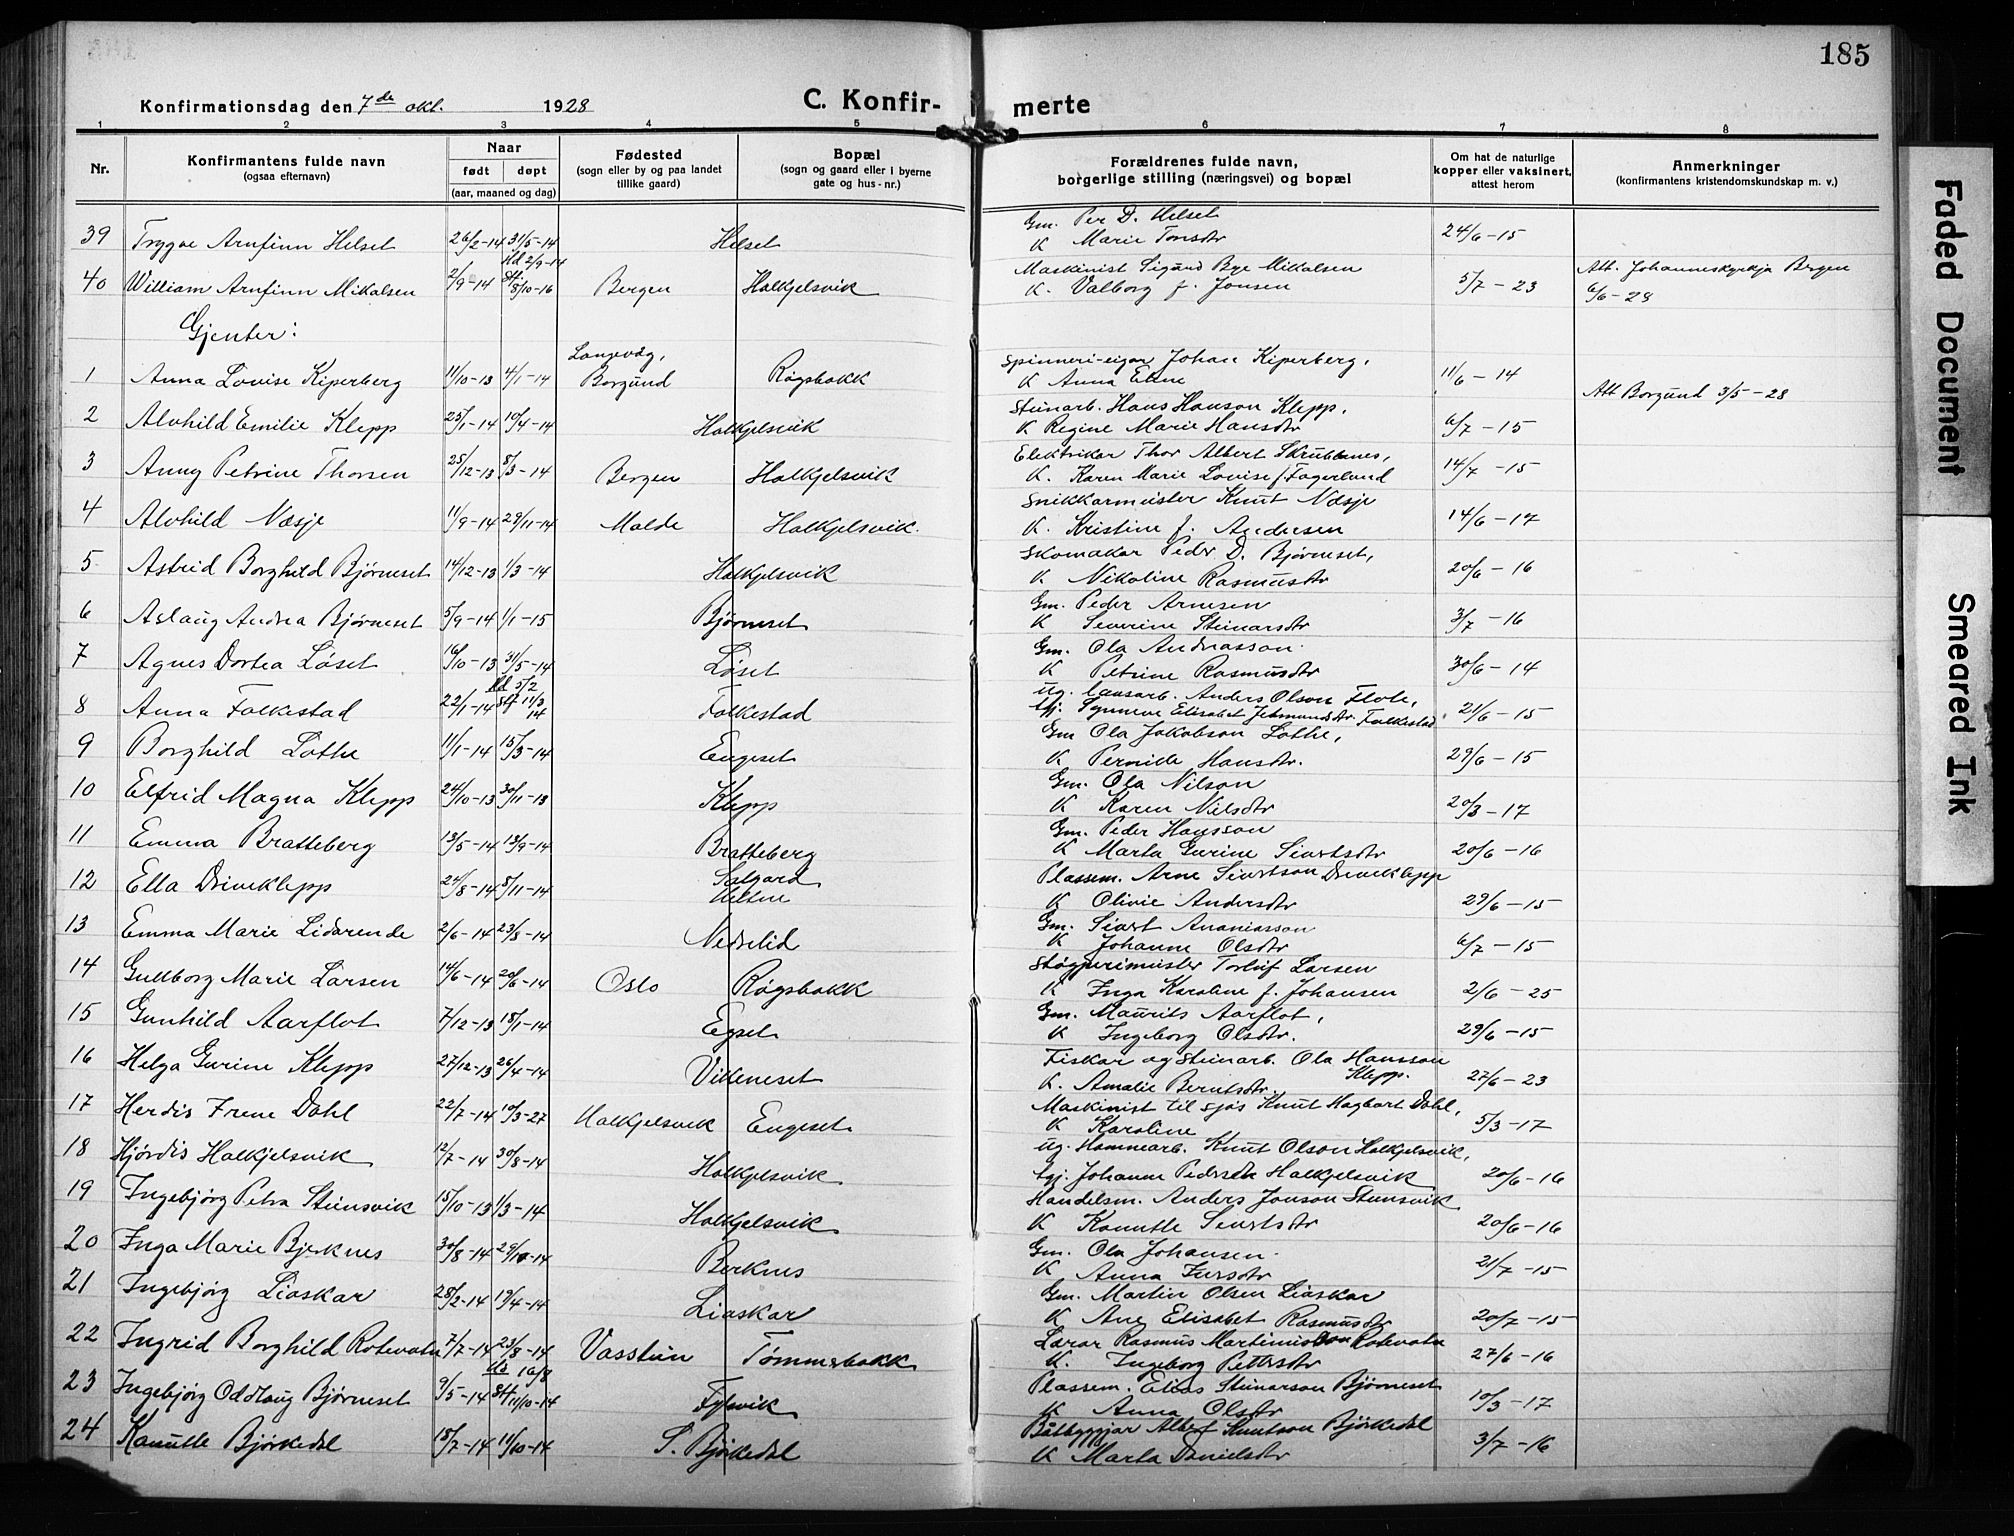 185
Konfirmationsdag den 7de okt. 1928
C. Konfir- merte
1 2 3 4 5 6 7 8
Nr.
Konfirmantens fulde navn
(ogsaa efternavn)
Naar
født døpt
(aar, maaned og dag)
Fødested
(sogn eller by og paa landet
tillike gaard)
Bopæl
(sogn og gaard eller i byerne
gate og hus-nr.)
Forældrenes fulde navn,
borgerlige stilling (næringsvei) og bopæl
Om hat de naturlige
kopper eller vaksinert,
attest herom
Anmerkninger
(konfirmantens kristendomskundskap m. v.)
39 Trygve Arnfinn Helset 26/2-14 31/5-14 Helset Gm. Per D. Helset
K Marie Tonsdtr 24/6-15
40 William Arnfinn Mikalsen 2/9-14 Hd 2/9-14 St. 8/10-16 Bergen Halkjelsvik Maskinist Sigurd Bye Mikalsen
K. Valborg f. Jonsen 5/7-23 Att. Johanneskyrkja Brgen
6/6-28
Gjenter:
1 Anna Lovise Kiperberg 11/10-13 4/1-14 Langevåg, Borgund Røgsbakk Spinneri-eigar Johan Kiperberg,
K Anna Eline 11/6-14 Att Borgund 3/5-28
2 Alvhild Emilie Klepp 25/1-14 10/4-14 Halkjelsvik Steinarb. Hans Hanson Klepp,
K Regine Marie Hansdtr 6/7-15
3 Anny Petrine Thorsen 25/12-13 8/3-14 Bergen Halkjelsvik Elektrikar Thor Albert Skrubbnes,
K. Karen Marie Lovise f. Fagerlund 14/7-15
4 Alvhild Næsje 11/9-14 29/11-14 Molde Halkjelsvik. Snikkarmeister Knut Næsje
K. Kristine f. Andersen 14/6-17
5 Astrid Borghild Bjørneset 14/12-13 1/3-14 Halkjelsvik Skomakar Peder D. Bjørneset,
K Nikoline Rasmusdtr 20/6-16
6 Aslaug Andrea Bjørneset 5/9-14 1/1-15 Bjørneset Gm. Peder Arnesen
K Severine Steinarsdtr 3/7-16
7 Agnes Dortea Løset 16/10-13 31/5-14 Løset Gm. Ola Andreasson
K Petrine Rasmusdtr 30/6-14
8 Anna Folkestad 22/1-14 Hd 5/2 Stf 11/3 14 Folkestad Ug. lausarb. Anders Olson Flote,
tgj. Synneve Elisabet Jetmundsdtr Folkestad 21/6-15
9 Borghild Lothe 11/1-14 15/3-14 Engeset Gm Ola Jakobson Lothe,
K Pernille Hansdtr. 29/6-15
10 Elfrid Magna Klepp 24/10-13 30/11-13 Klepp Gm. Ola Nilson
K Karen Nielsdtr 20/3-17
11 Emma Bratteberg 13/5-14 13/9-14 Bratteberg Gm. Peder Hansson
K Marta Gurine Sivertsdtr 20/6-16
12 Ella Driveklepp 24/8-14 8/11-14 Plassem. Arne Sivertson Driveklepp
K Olivie Andersdtr 29/6-15
13 Emma Marie Lidarende 2/6-14 23/8-14 Nedrelid Gm. Sivert Ananiasson
K Johanne Olsdtr 6/7-15
14 Gullborg Marie Larsen 14/6-14 20/6-14 Oslo Røgsbakk Støyperimeister Torleif Larsen
K Inga Karoline f. Johansen 2/6-25
15 Gunhild Aarflot 7/12-13 18/1-14 Egset Gm. Maurits Aarflot,
K Ingeborg Olsdtr. 29/6-15
16 Helga Gurine Klepp 27/12-13 26/4-14 Vikeneset Fiskar og Steinarb. Ola Hansson
Klepp.
K. Amalie Berntsdtr. 27/6-23
17 Herdis Irene Dahl 22/7-14 10/3-27 Halkjelsvik Engeset Maskinist til sjøs Knut Hagbart Dahl,
K Karoline 5/3-17
18 Hjørdis Halkjelsvik 12/7-14 30/8-14 Halkjelsvik Ug. Hamnearb. Knut Olson Halkjelsvik,
tgj. Johanne Pedersdtr Halkjelsvik 20/6-16
19 Ingebjørg Petra Steinsvik 15/10-13 1/3-14 Halkjelsvik Handelsm. Anders Jonson Steinsvik
K Kanutte Sivertsdtr 20/6-16
20 Inga Marie Bjerknes 30/8-14 29/10-14 Berknes Gm. Ola Johansen
K Anna Iversdtr 21/7-15
21 Ingebjørg Liaskar 28/2-14 19/4-14 Liaskar Gm. Martin Olsen Liaskar
K Ane Elisabet Rasmusdtr 20/7-15
22 Ingrid Borghild Rotevatn 7/7-14 23/8-14 Vasstun Tømmerbakk Lærar Rasmus Martinusson Rotevatn
K. Ingeborg Pettersdtr 27/6-16
23 Ingebjørg Oddlaug Bjørneset 9/5-14 Hd 16/8 Stf 11/10-14 Fyrvik Plassem. Elias Steinarson Bjørneset
K Anna Olsdtr 10/3-17
24 Kanutte Bjørkedal 18/7-14 11/10-14 S. Bjørkedal Båtbyggjar Albert Knutson Bjørkedal
K Marta Danielsdtr 3/7-16
Faded Document
Smeared Ink